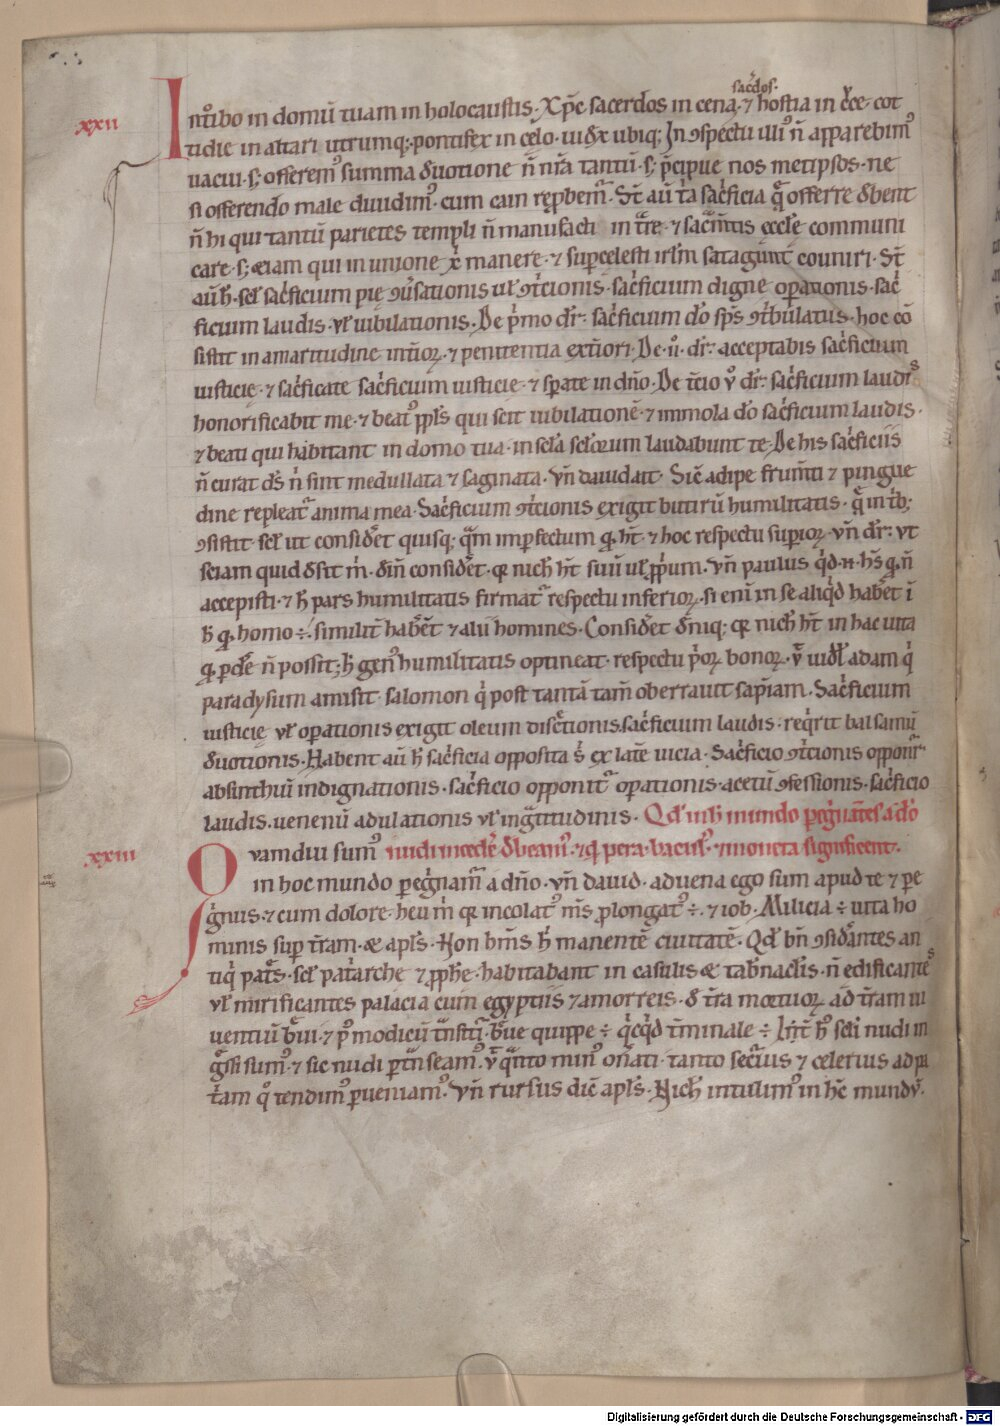 sac̄dos.
xxii
Int̾ibo in domū tuam in holocaustis. Xp̄c sacerdos in cena. ⁊ hostia in c̾ce. cot
tidie in altari utrumq;. pontifex in cęlo. iudex ubiq; In ɔspectu illi᷒ n̄ apparebim᷒
uacui. s; offerem᷒ summa deuotione n̄ nr̄a tantū. s; p̄cipue nos metipsos. ne
si offerendo male diuidim᷒. cum cain rep̱bem᷒. St̄ aū t̄a sac̾ficia q̄ offerre debent
n̄ hi qui tantū parietes templi n̄ manufacti in t̄re. ⁊ sac̄m̄tis ęccl̄e communi
care. s; etiam qui in unione x̄ manere. ⁊ sup̱celesti ierl̄m satagunt couniri. St̄
aū h̄. scl̄ sac̾ficium pię ɔu̾sationis ul̄ ɔt̾cionis. sac̾ficium digne op̱ationis. sac̾
ficium laudis. ul̄ iubilationis. De p̾mo dr̄. sac̾ficium do̾ sp̄s ɔt̾bulatus. hoc cō
sistit in amaritudine int̾iori. ⁊ penitentia ext̾iori. De .ii̾. dr̄. acceptabis sac̾ficium
iusticię. ⁊ sac̾ficate sac̾ficium iusticie. ⁊ sp̱ate in dn̄o. De t̾cio u̾ dr̄. sac̾ficium laudis
honorificabit me. ⁊ beat᷒ pp̄ls qui scit iubilationē. ⁊ immola do̾ sac̾ficium laudis.
⁊ beati qui habitant in domo tua. in scl̄a scl̄orum laudabunt te. De his sac̾ficiis
n̄ curat ds̄ n̄ sint medullata ⁊ saginata. Vn̄ dauid ait. Sic̄ adipe frum̄ti ⁊ pingue
dine repleat᷒ anima mea. Sac̾ficium ɔt̾cionis exigit butirū humilitatis. q̄ in t̾b;
ɔsistit. scl̄ ut consid̾et quisq; q̄m imp̱fectum q̱ ht̄. ⁊ hoc respectu sup̱ioꝝ. vn̄ dr̄. vt
sciam quid desit m̄. Dein̄ consid̾et. q̱ nich̾ ht̄ suū ul̄ pp̱um. Vn̄ paulus q̾d .n̄. hs̄ q̱ n̄
accepisti. ⁊ h̄ pars humilitatis firmat᷒ respectu inferioꝝ. si eni̅ in se aliq̾d habet ī
h̄ q̱ homo ÷. similit̾ habēt ⁊ alii homines. Consid̾et deniq;. q̱ nich̾ ht̄ in hac uita
q̱ p̱de̾ n̄ possit; h̄ gen᷒ humilitatis optineat. respectu p̾oꝝ bonoꝝ. v̄ uidel̄ adam q̾
paradysum amisit. salomon q̾ post tantā tam̄ oberrauit sap̄iam. Sac̾ficium
iusticię ul̄ op̱ationis exigit oleum disc̾tionis. sac̾ficium laudis. req̾rit balsamū
deuotionis. Habent aū h̄ sac̾ficia opposita s̾ ex latē uicia. Sac̾ficio ɔt̾cionis opponit᷒
absinthiū indignationis. sac̾ficio opponit᷒ op̱ationis. acetū ɔfessionis. sac̾ficio
laudis. uenenū adulationis ul̄ ing̾titudinis. Qd̾ in h̄ mundo p̱eg̾nātes a do̾
xxiii
Qvamdiu sum᷒ nudi incede̾ debeam᷒. ⁊ q̱ pera. bacul᷒. ⁊ moneta significent.
in hoc mundo p̱eg̾nam᷒ a dn̄o. vn̄ dauid. aduena ego sum apud te ⁊ pe
g̾nus. ⁊ cum dolore. heu m̄ q̱ incolat᷒ m̄s p̱longat᷒ ÷. ⁊ iob. Milicia ÷ uita ho
minis sup̱ t̄ram. & apl̄s. Non hm̄s h̄ manentē ciuitatē. Qd̾ bn̄ ɔsid̾antes an
tiq̾ pat̾s. scl̄ pat̾arche ⁊ pp̄he. habitabant in casulis & tab̾nacl̄is. n̄ edificantes
ul̄ mirificantes palacia cum egyptiis ⁊ amorreis. de t̄ra mortuoꝝ ad t̄ram ui
uentiū b̾ui. ⁊ p᷒ modicū t̾nsit᷒. b̾ue quippe ÷ q̾cq̾d t̾minale ÷ Int̄ h᷒ scl̄i nudi in
g̾ssi sum᷒. ⁊ sic nudi p̱t̾nseam᷒. v̄ q̾nto min᷒ on̾ati. tanto secu̾ius ⁊ celerius ad pa
t̾am q᷒ tendim᷒ p̱ueniam᷒. Vn̄ rursus dic̄ apl̄s. Nich̾ intulim᷒ in hc̄ mundū.
Digitalisierung gefördert durch die Deutsche Forschungsgemeinschaft - DFG